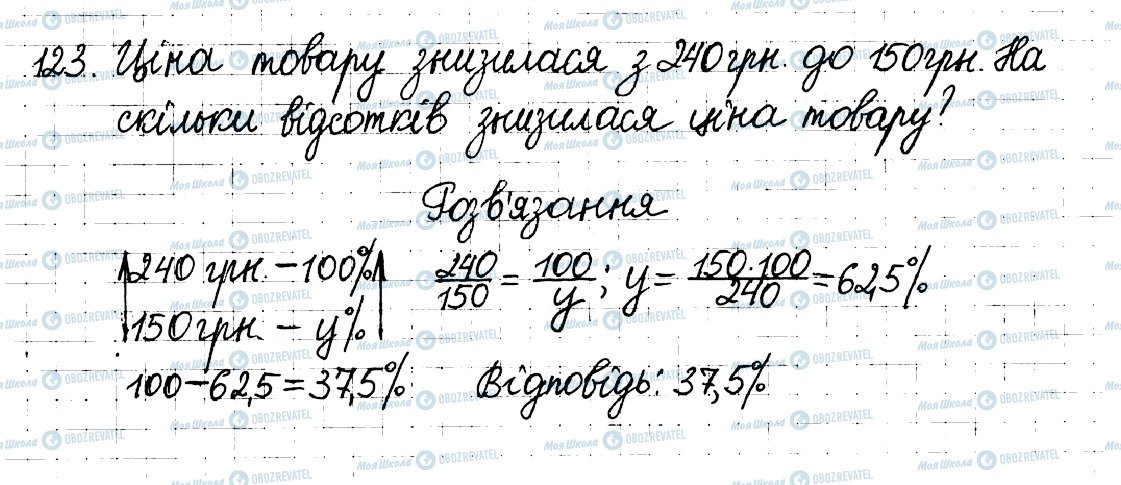 123. Ціна товару знизилася з 240 грн. до 150 грн. На
скільки відсотків знизилася ціна товару?
Розв'язання
240 грн. – 100%
150 грн. – y%
240/150 = 100/y; y = 150·100/240 = 62,5%
100 – 62,5 = 37,5%
Відповідь: 37,5%
Моя Школа OBOZREVATEL